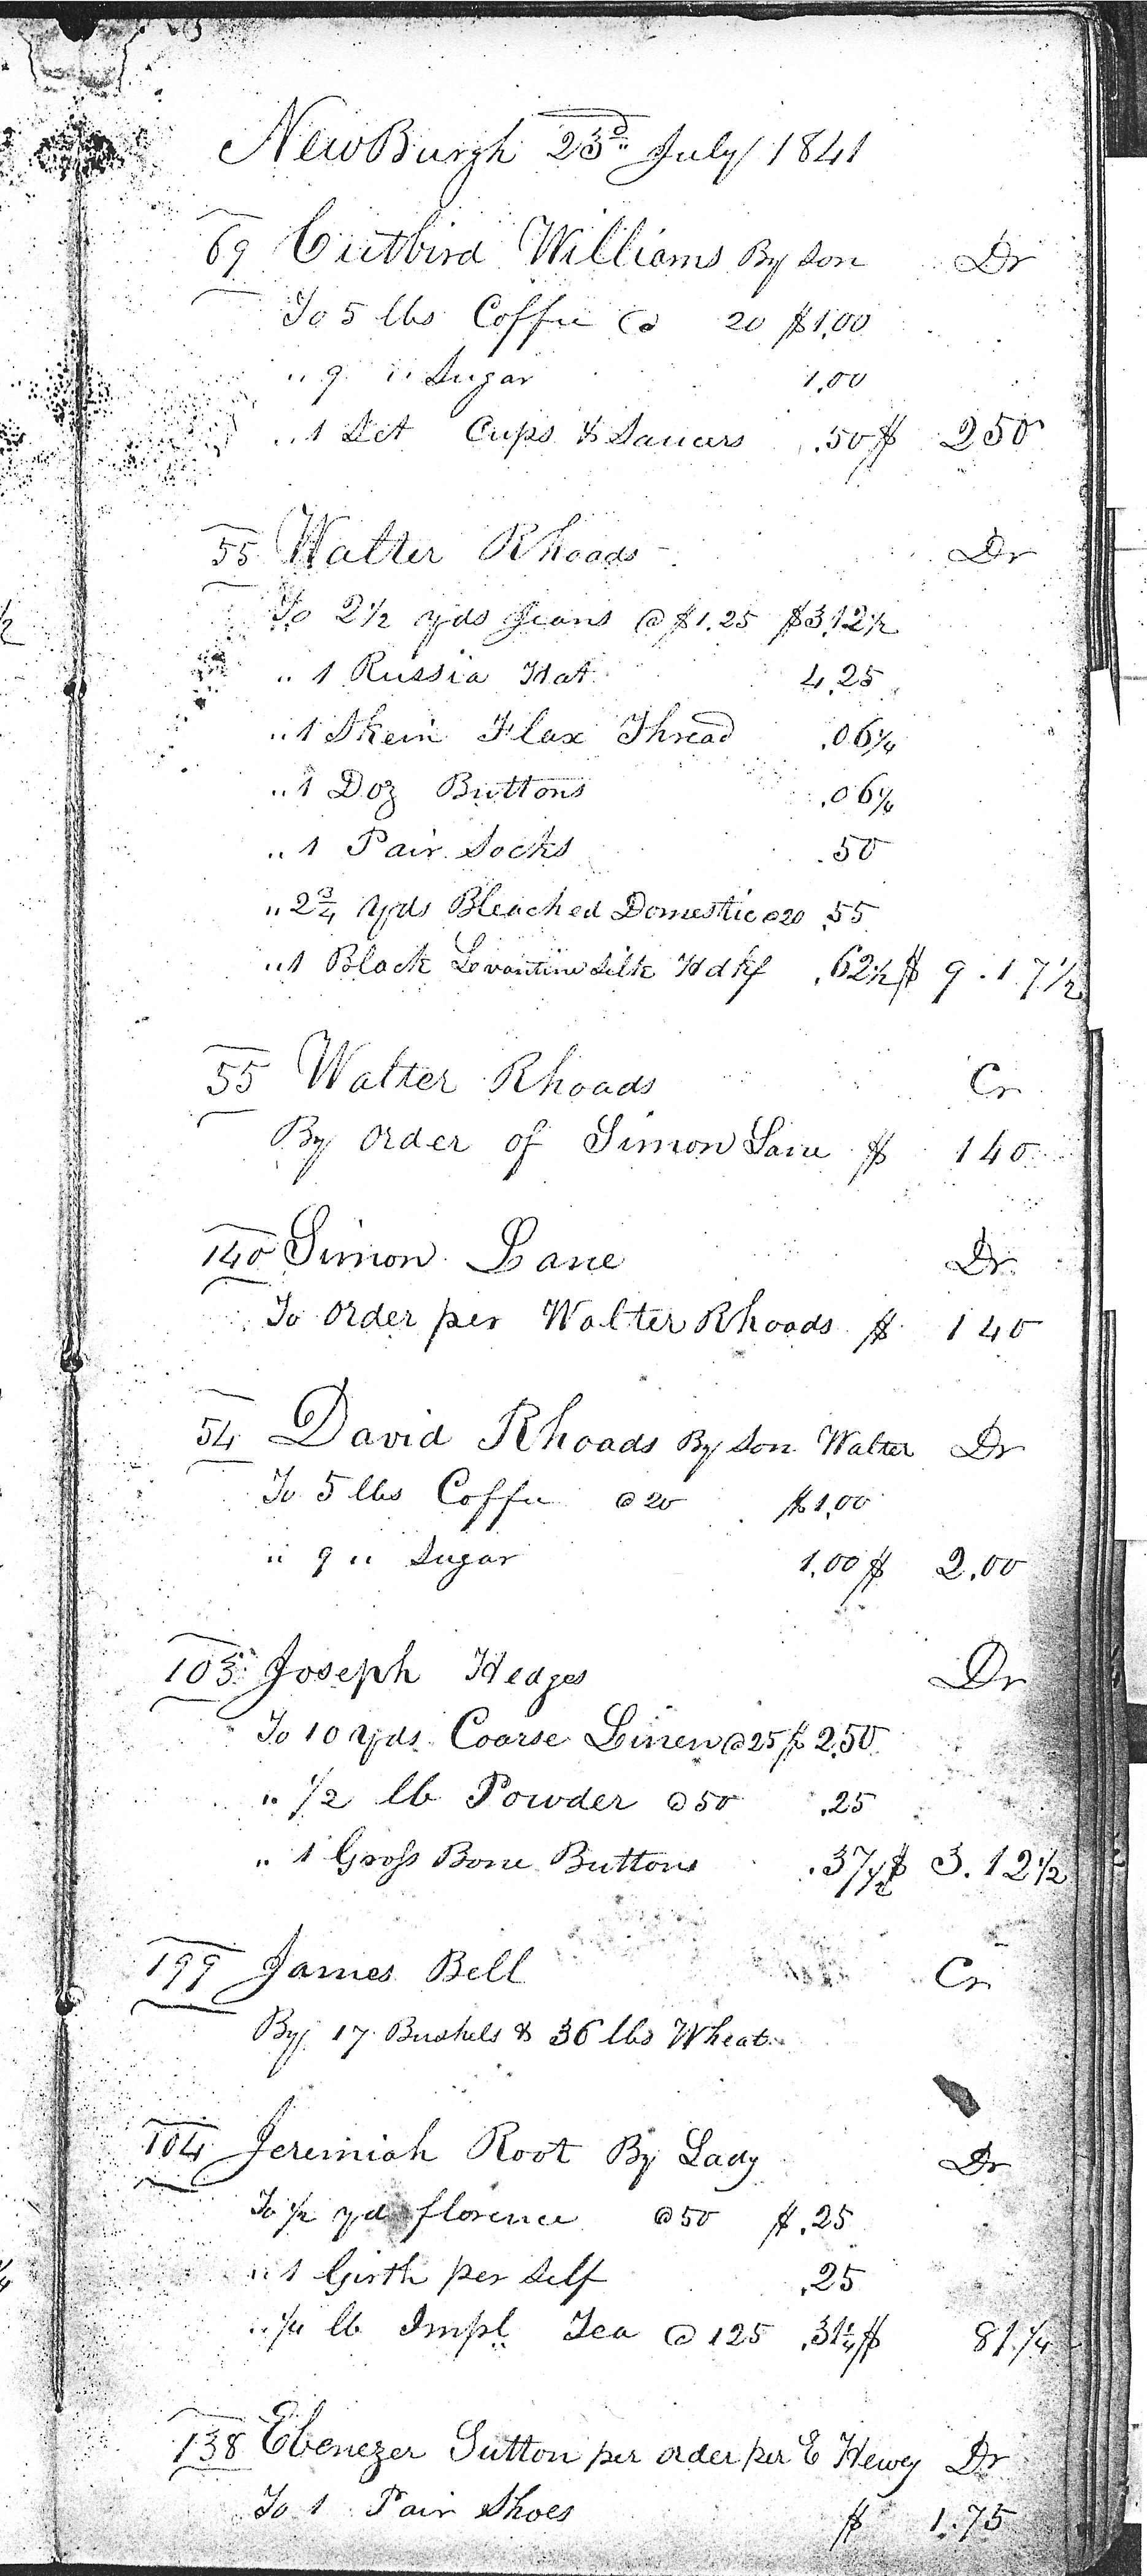 NewBurgh 23d July 1841
69 Cutbird Williams By Son Dr
To 5 lbs Coffee @ 20 $1,00
" 9 " Sugar 1,00
" 1 Set Cups & Saucers .50 $ 250
55 Walter Rhoads Dr
To 2 1/2 yds Jeans @ $1.25 $3,12 1/2
" 1 Russia Hat 4,25
" 1 Skein Flax Thread ,06 1/4
" 1 Doz Buttons ,06 1/4
" 1 Pair Socks .50
" 2 3/4 Yds Bleached Domestic @ 20 ,55
" 1 Black Levantine Silk Hdkf ,62 1/2 $ 9.17 1/2
55 Walter Rhoads Cr
By order of Simon Lane $ 140
140 Simon Lane Dr
To order per Walter Rhoads $ 140
54 David Rhoads By Son Walter Dr
To 5 lbs Coffee @ 20 $1,00
" 9 " Sugar 1,00 $ 2,00
105 Joseph Hedges Dr
To 10 Yds Coarse Linen @ 25 $ 2,50
" 1/2 lb Powder @ 50 ,25
" 1 Gross Bone Buttons .37 1/2 $ 3.12 1/2
199 James Bell Cr
By 17 Bushels & 36 lbs Wheat
104 Jeremiah Root By Lady Dr
To 1/2 yd florence @ 50 $ .25
" 1 Girth per Self ,25
" 1/4 lb Impl Tea @ 125 ,31 1/4 $ 81 1/4
138 Ebenezer Sutton per order per E Hewey Dr
To 1 Pair Shoes $ 1.75